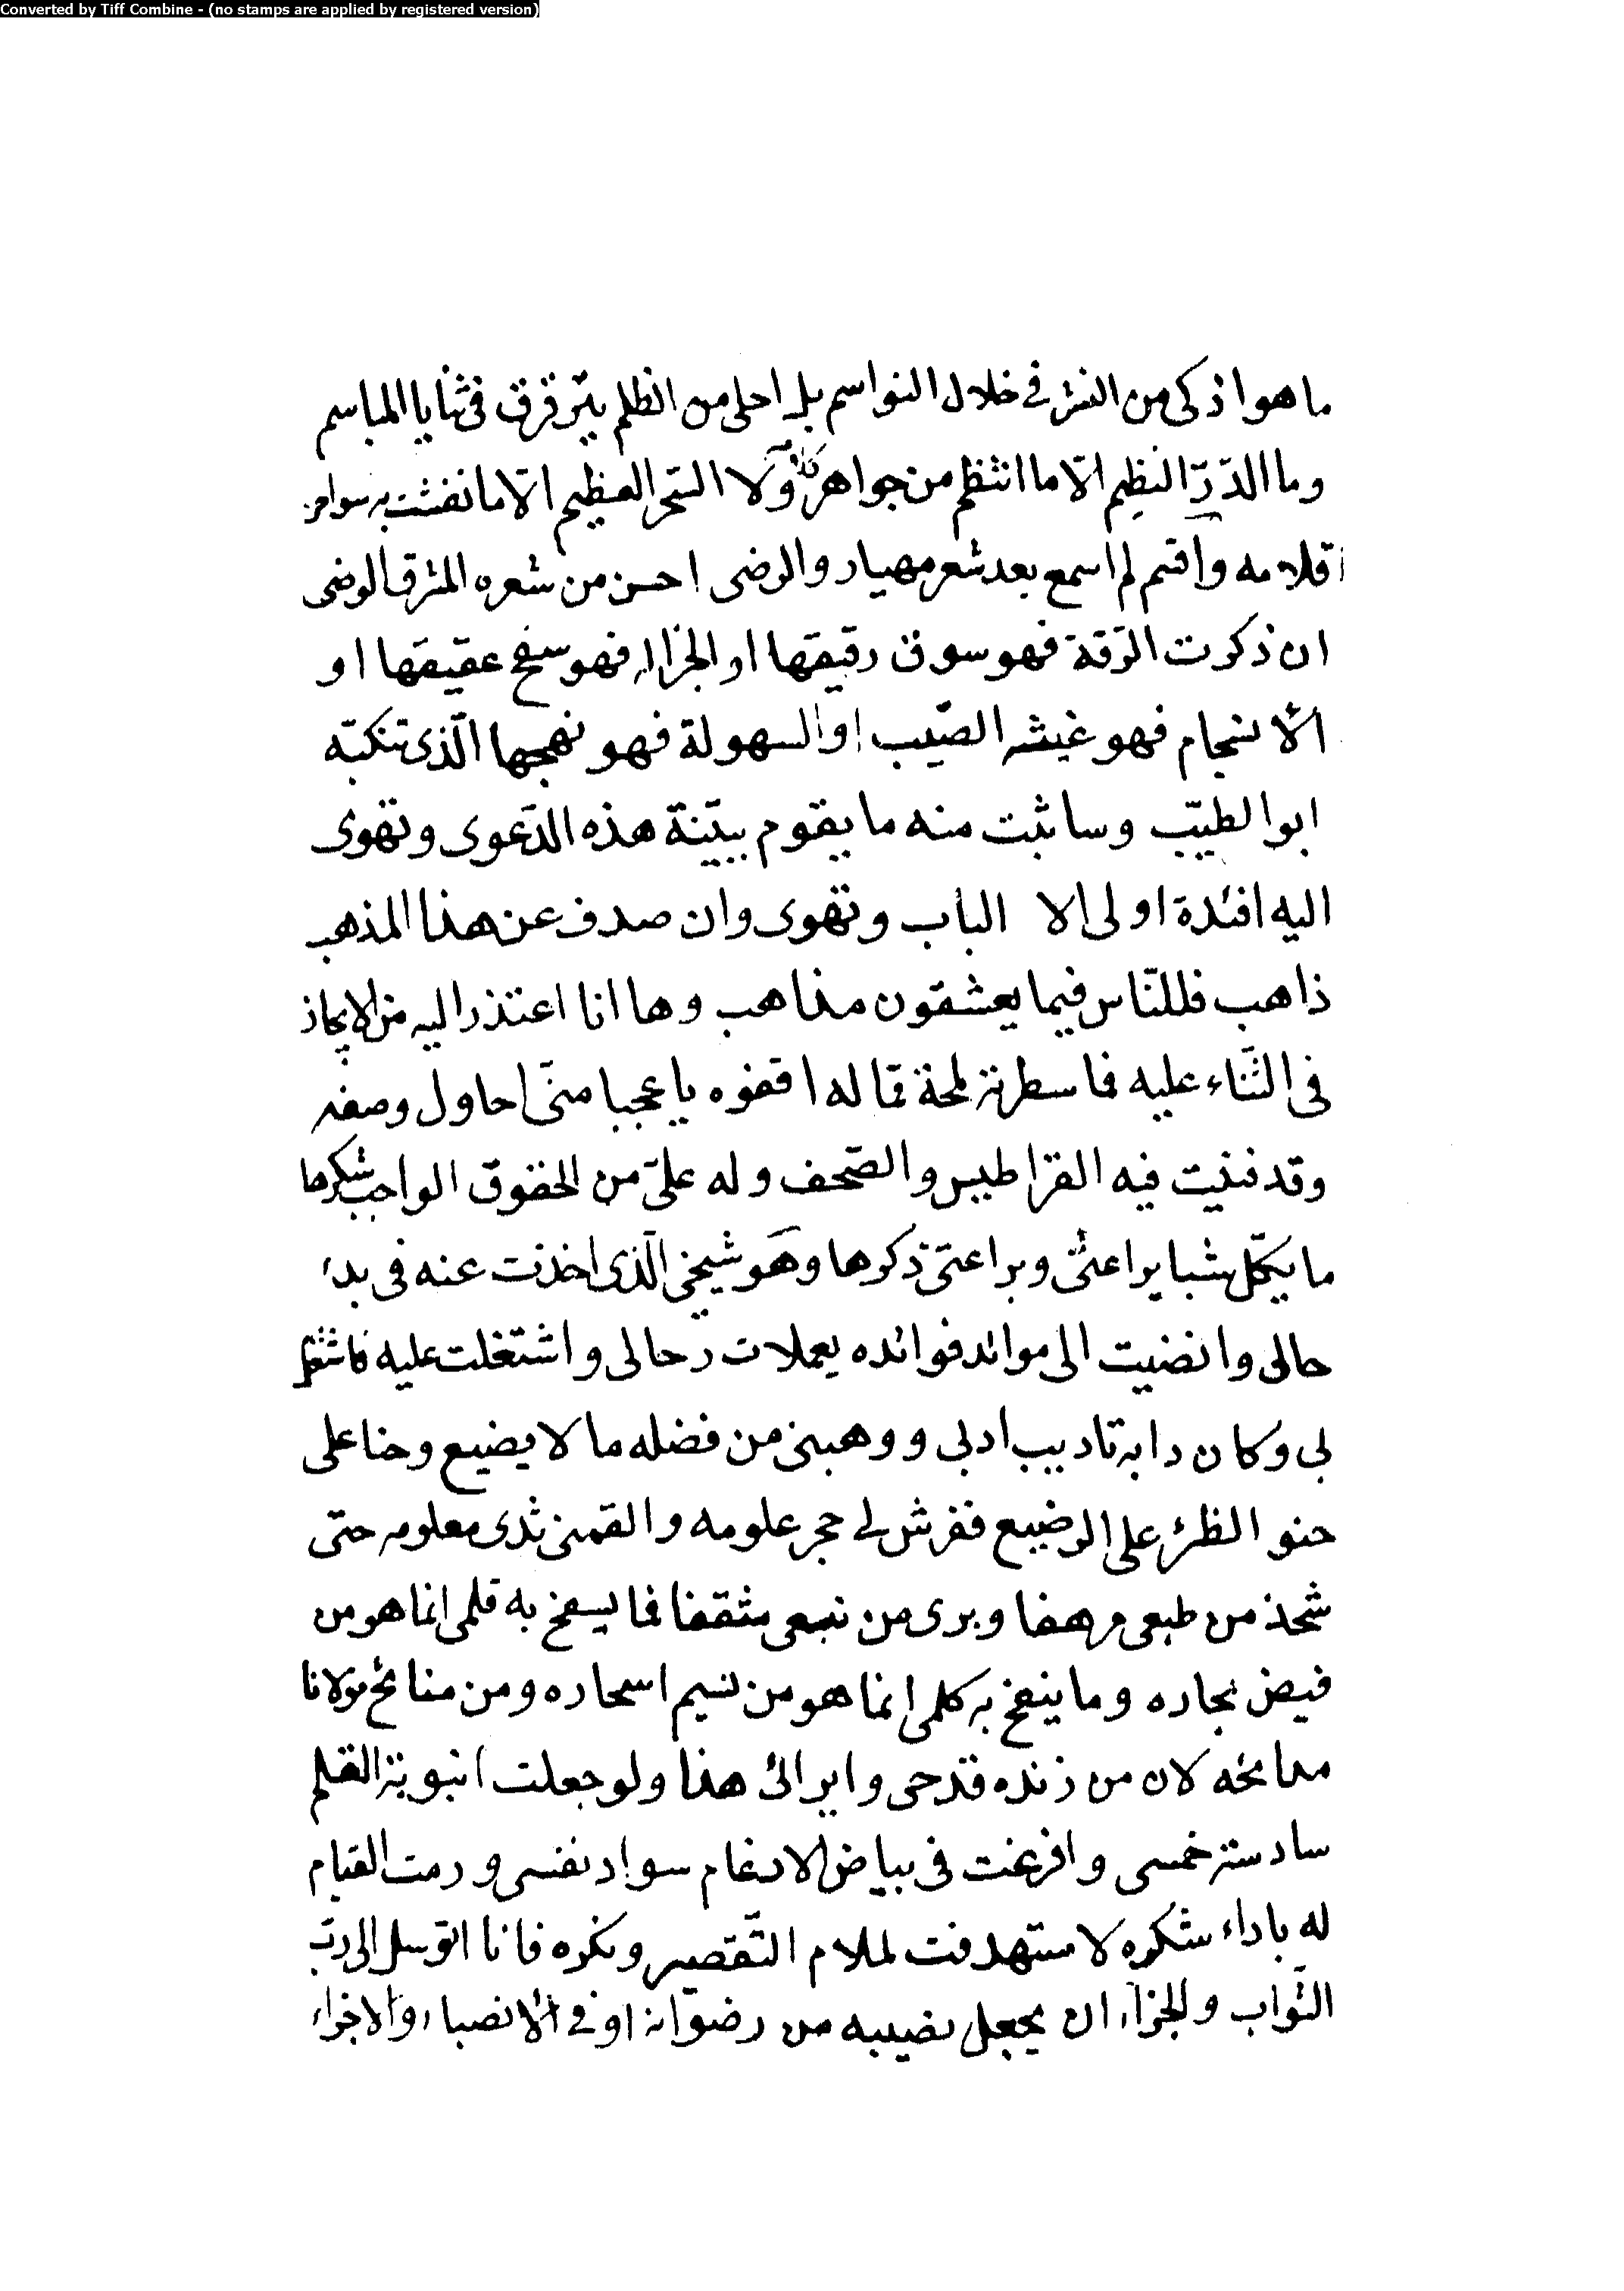 Converted by Tiff Combine - (no stamps are applied by registered version)
ما هو اذكى من النشر فى خلال النواسم بل احلى من الظلم يترقرق فى ثنايا المباسم
وما الدّرّ النظيم الّا ما انتظم من جواهر كلامه ولا السّحر العظيم الّا ما نفثت به سواحر
اقلامه واقسم لم اسمع بعد شعر مهيار والرضى احسن من شعره المشرق الوضى
ان ذكرت الرّقة فهو سوق رقيقها او الجزاله فهو سفح عقيقها او
الانسجام فهو غيثه الصّيب او السهولة فهو نهجها الّذى تنكبّه
ابو الطيّب وساثبت منه ما يقوم ببيّنة هذه الدّعوى وتهوى
اليه افئدة اولى الا لباب وتهوى وان صدف عن هذا المذهب
ذاهب فللنّاس فيما يعشقون مذاهب وها انا اعتذر اليه من الايجاز
فى الثّناء عليه فما سطرته لمحة مما له اقفوه يا عجبا منّى احاول وصفه
وقد فنيت فيه القراطيس والصّحف وله علىّ من الحقوق الواجب شكرها
ما يكلّ شبا يراعتى وبراعتى ذكرها وهو شيخى الّذى اخذت عنه فى بدء
حالى وانضيت الى موائد فوائده يعملات رحالى واشتغلت عليه فاشتغل
بى وكان دابه تاديب ادبى ووهبنى من فضله ما لا يضيع وحنا على
حنو الظئر على الرضيع ففرش لى حجر علومه والقمنى ثدى معلومه حتى
شحذ من طبعى مرهفا وبرى من نبعى مثقفا فما يسفح به قلمى انما هو من
فيض بحاره وما ينفح به كلمى انما هو من نسيم اسحاره ومن منائح مولانا
مدائحه لان من زنده قدحى وايرائى هذا ولو جعلت انبوبة القلم
سادسة خمسى وافرغت فى بياض الارغام سواد نفسى ورمت القيام
له باداء شكره لاستهدفت لملام التّقصير ونكره فانا اتوسل الى ربّ
الثّواب والجزاء ان يجعل نصيبه من رضوانه اوفى الانصباء والاجزاء